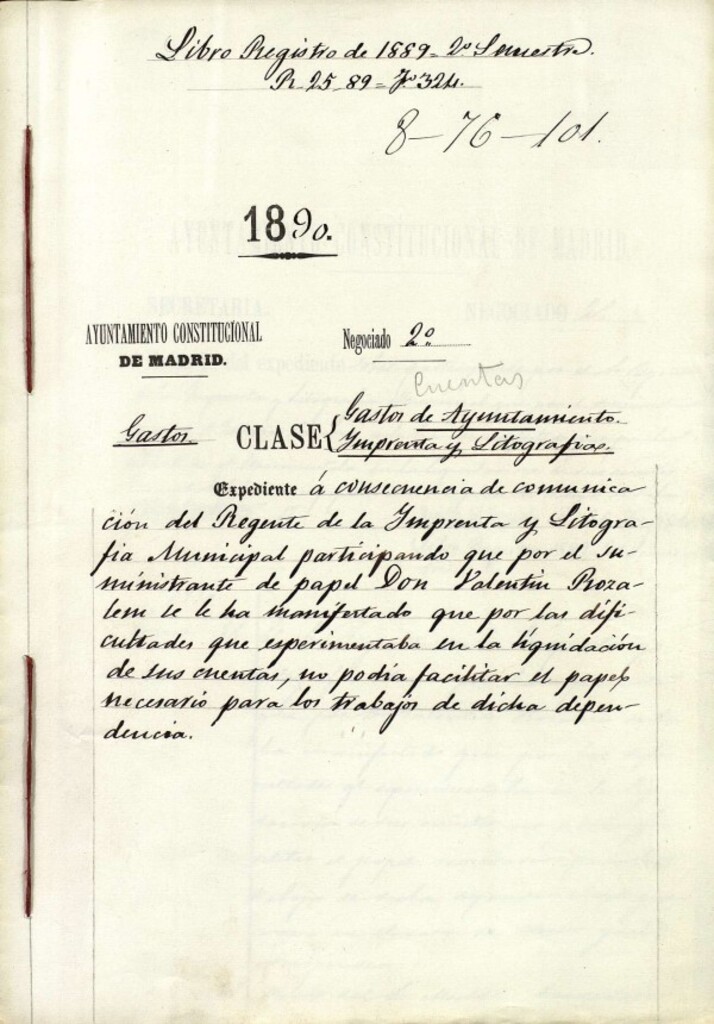 Libro Registro de 1889 = 2º Semestre.
R. 25 89 = Fº 324.
8-76-101.
1890.
AYUNTAMIENTO CONSTITUCIONAL
DE MADRID.
Negociado 2º
Cuentas
Gastos. CLASE { Gastos de Ayuntamiento.
Imprenta y Litografias.
Expediente á consecuencia de comunica
ción del Regente de la Imprenta y Litogra-
fia Municipal participando que por el su-
ministrante de papel Don Valentin Roza-
lem se le ha manifestado que por las difi-
cultades que esperimentaba en la liquidación
de sus cuentas, no podia facilitar el papel
necesario para los trabajos de dicha depen-
dencia.